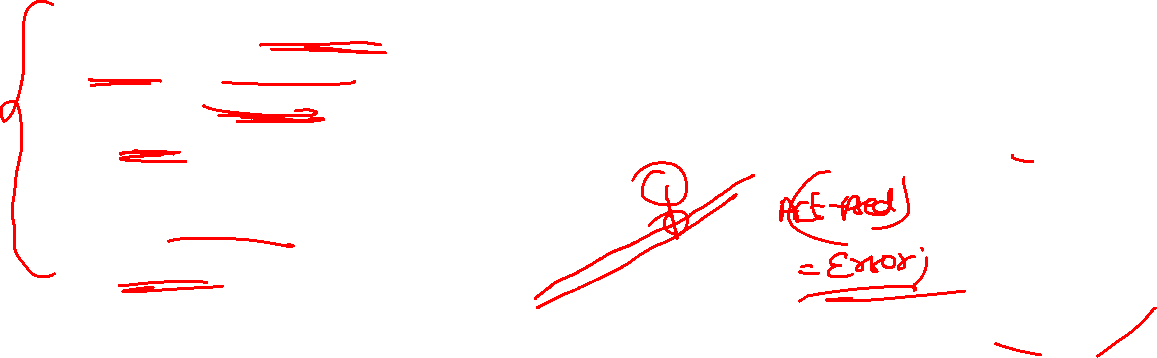 Act-Pred
= Error;